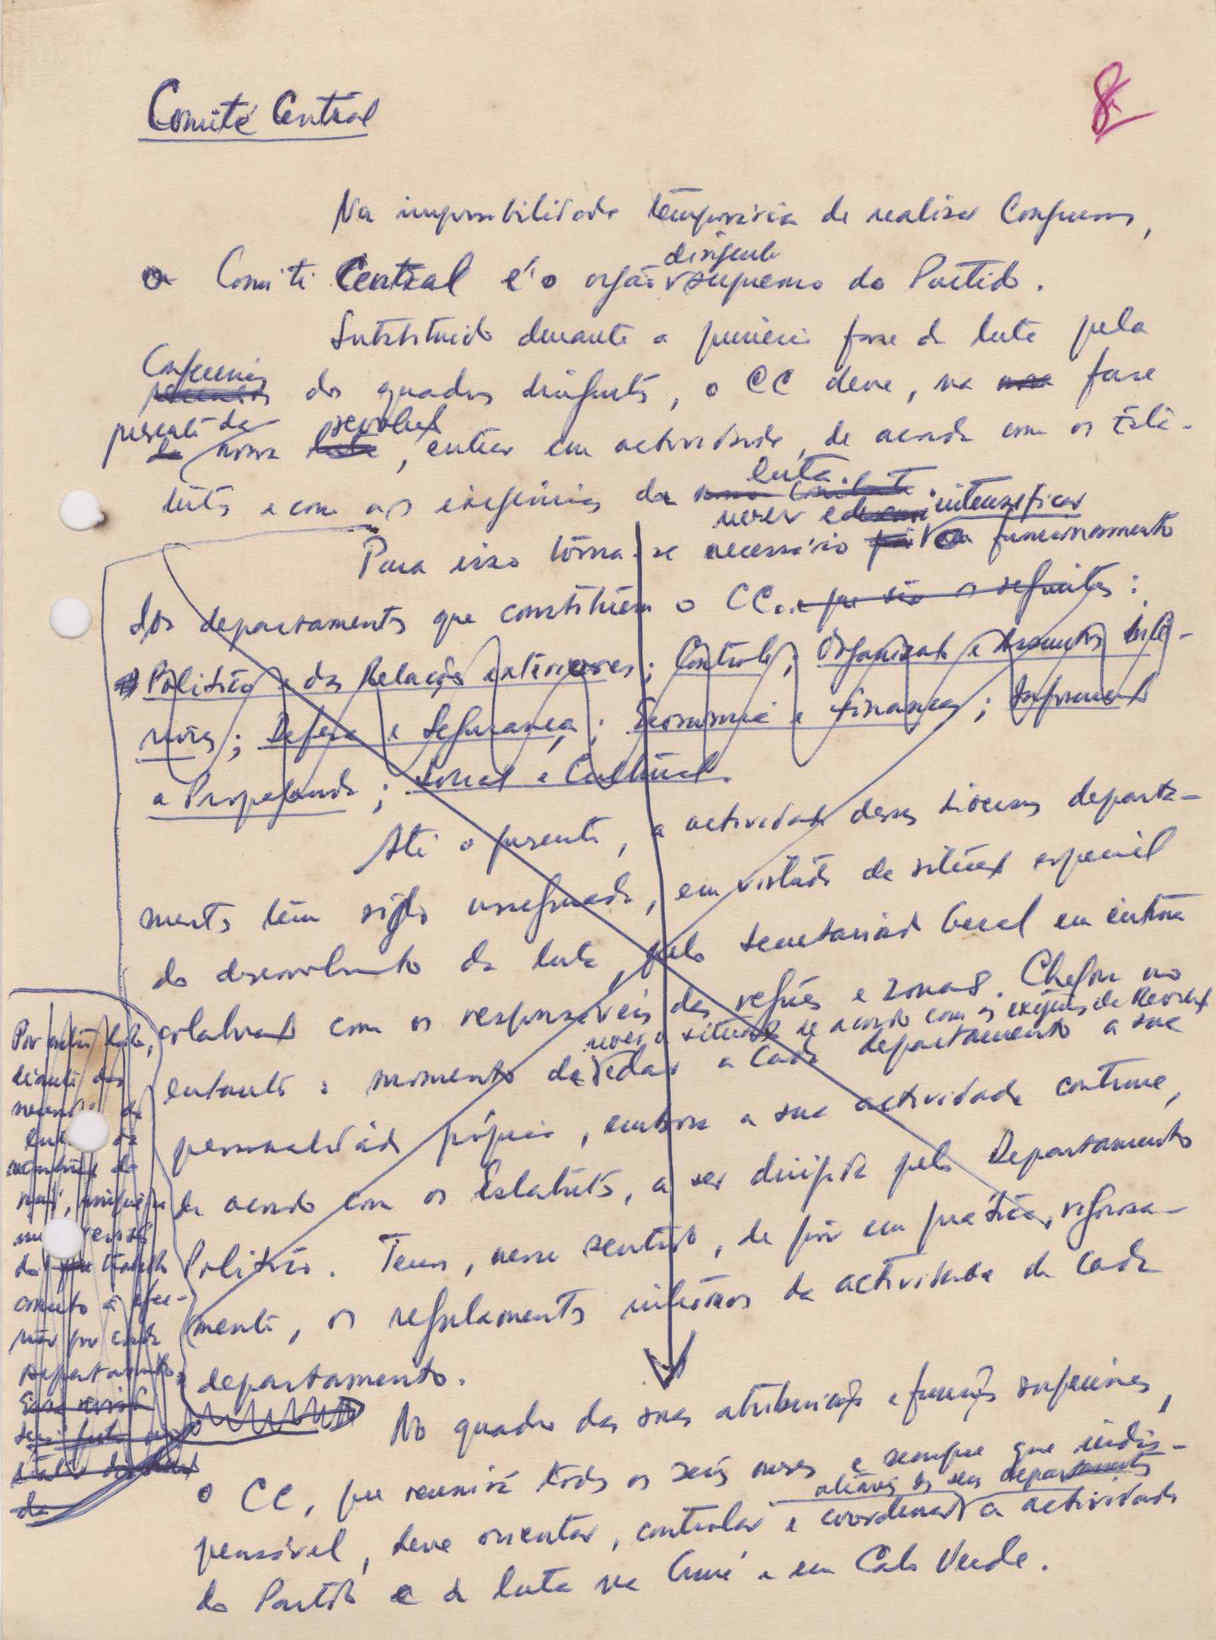 8
Comité Central
Na impossibilidade temporária de realizar Congressos,
o Comité Central é o orgão dirigente supremo do Partido.
Substituido durante a primeira fase da luta pela
Conferência dos quadros dirigentes, o CC deve, na nova fase
presente da nossa luta, entrar em actividade, de acordo com os Esta-
tutos e com as exigências da luta.
rever e intensificar
Para isso torna-se necessário o funcionamento
dos departamentos que constituem o CC. que são os seguintes:
Político e das Relações exteriores; Controle; Organização e Assuntos inte-
riores; Defesa e Segurança; Economia e finanças; Informação
e Propaganda; Social e Cultural.
Até o presente, a actividade desses diversos departa-
mentos têm sido assegurada, em virtude da situação especial
do desenvolvimento da luta, pelo Secretariado Geral em íntima
colaboração com os responsáveis das regiões e zonas. Chegou no
rever a situação de acordo com as exigências da
entanto o momento de dar a cada departamento a sua
personalidade própria, embora a sua actividade continue,
de acordo com os Estatutos, a ser dirigida pelo Departamento
Político. Temos, nesse sentido, de pôr em prática, rigorosa-
mente, os regulamentos internos da actividade de cada
departamento.
Por outro lado,
cada
departamento.
Essa revisão
No quadro das suas atribuições e funções superiores,
o CC, que reunirá todos os seis meses e sempre que indis-
através dos seus departamentos
pensável, deve orientar, controlar e coordenar a actividade
do Partido e da luta na Guiné e em Cabo Verde.